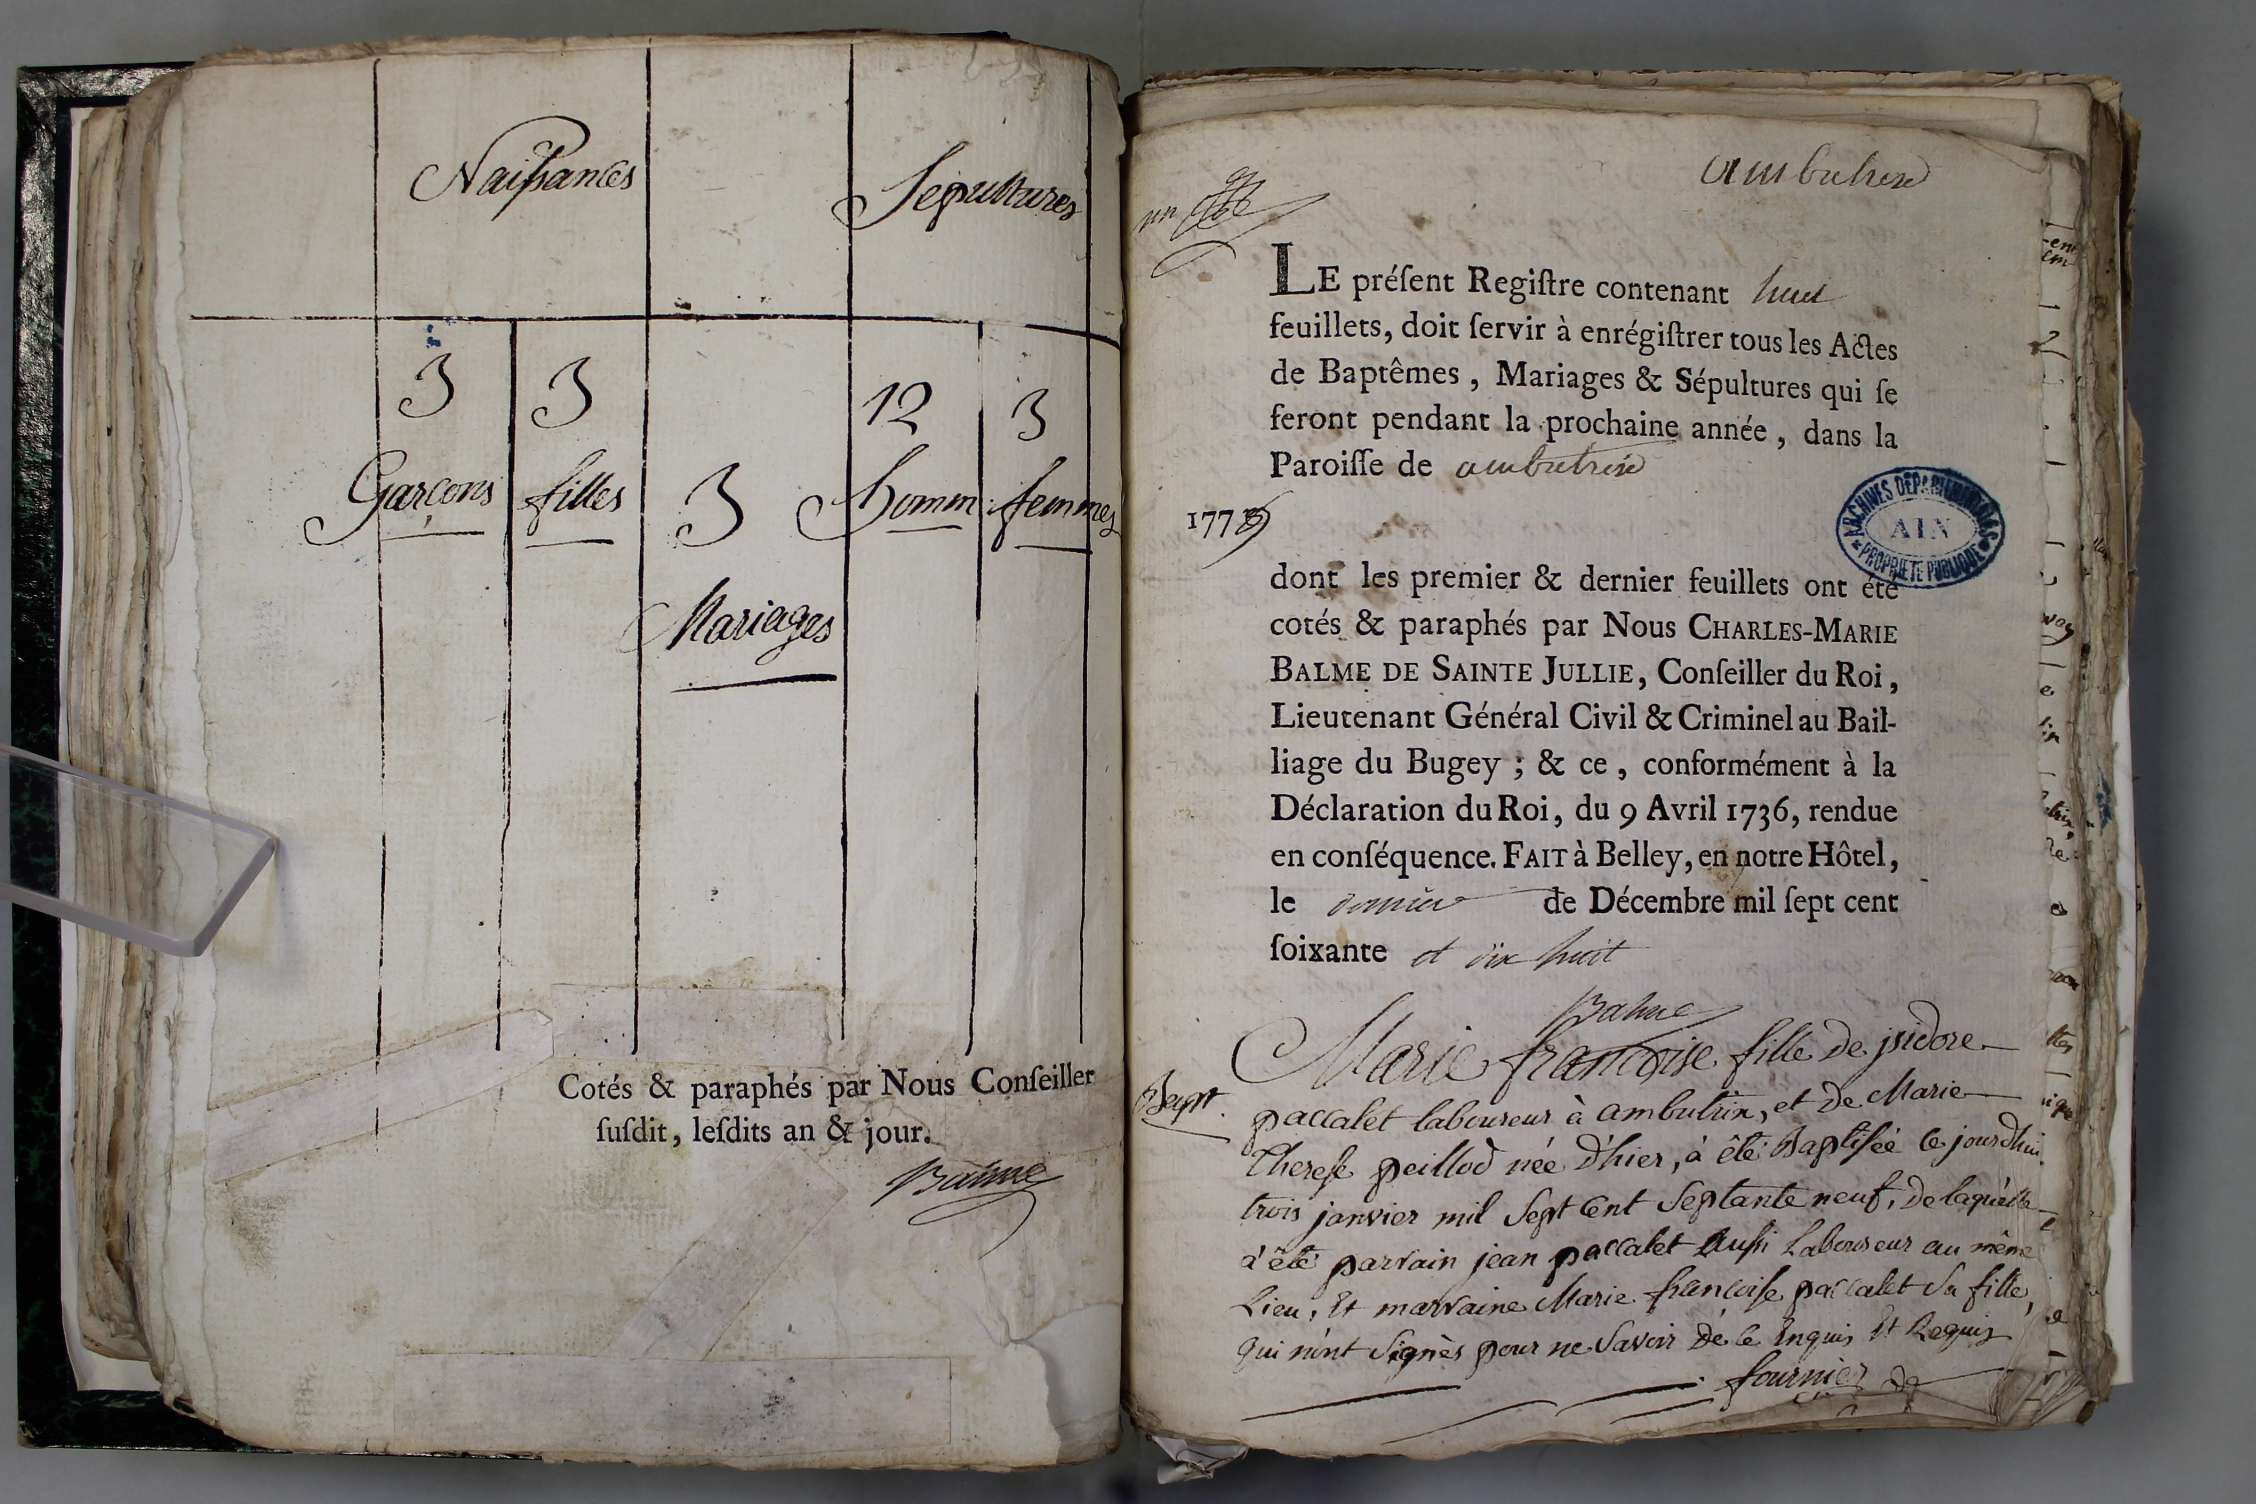 Naissances
Sepultures
3
3
12
3
Garçons
filles
3
homm
femmes
Mariages
Cotés & paraphés par Nous Conſeiller
ſuſdit, leſdits an & jour.
Balme
ambutrix
un
LE préſent Regiſtre contenant huit
feuillets, doit ſervir à enrégiſtrer tous les Actes
de Baptêmes, Mariages & Sépultures qui ſe
feront pendant la prochaine année, dans la
Paroiſſe de ambutrix
1779
ARCHIVES DEPARTEMENTALES
AIN
* PROPRIETE PUBLIQUE *
dont les premier & dernier feuillets ont été
cotés & paraphés par Nous CHARLES-MARIE
BALME DE SAINTE JULLIE, Conſeiller du Roi,
Lieutenant Général Civil & Criminel au Bail-
liage du Bugey ; & ce, conformément à la
Déclaration du Roi, du 9 Avril 1736, rendue
en conſéquence. FAIT à Belley, en notre Hôtel,
le dernier de Décembre mil ſept cent
ſoixante et dix huit
Balme
Marie françoise fille de jsidore
Bapt.
paccalet laboureur à ambutrix, et de Marie
Therese peillod née d'hier, à été Baptisée ce jourdhui
trois janvier mil sept cent septante neuf, de laquelle
a été parrain jean paccalet aussi Laboureur au même
Lieu, Et marraine Marie françoise paccalet sa fille,
qui n'ont signès pour ne savoir de ce Enquis Et Requis
fournier